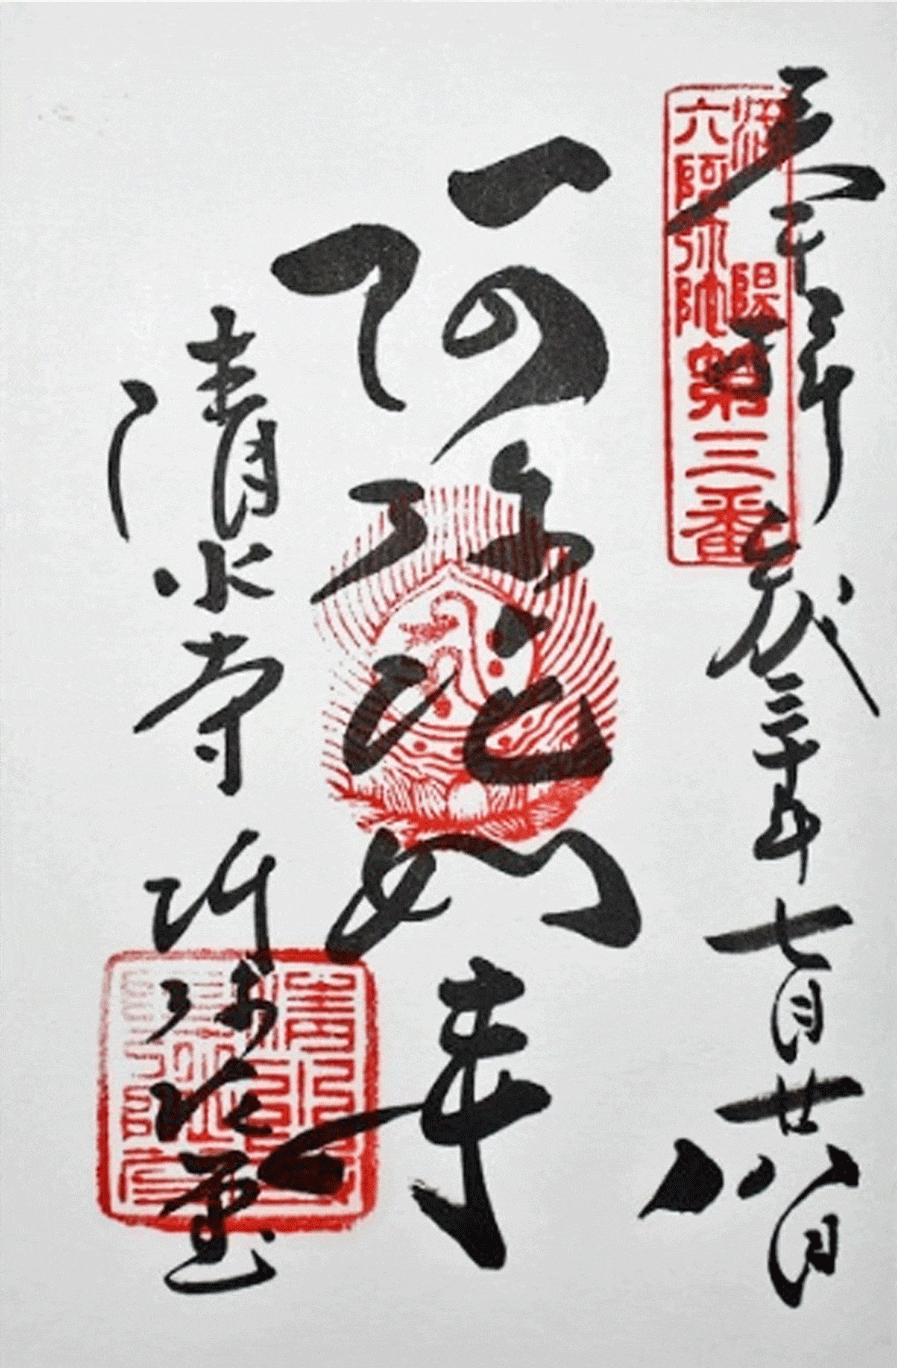 洛陽
六阿弥陀
第三番
奉拝 平成三十年七月廿八日
阿弥陀如来
清水寺 阿弥陀堂